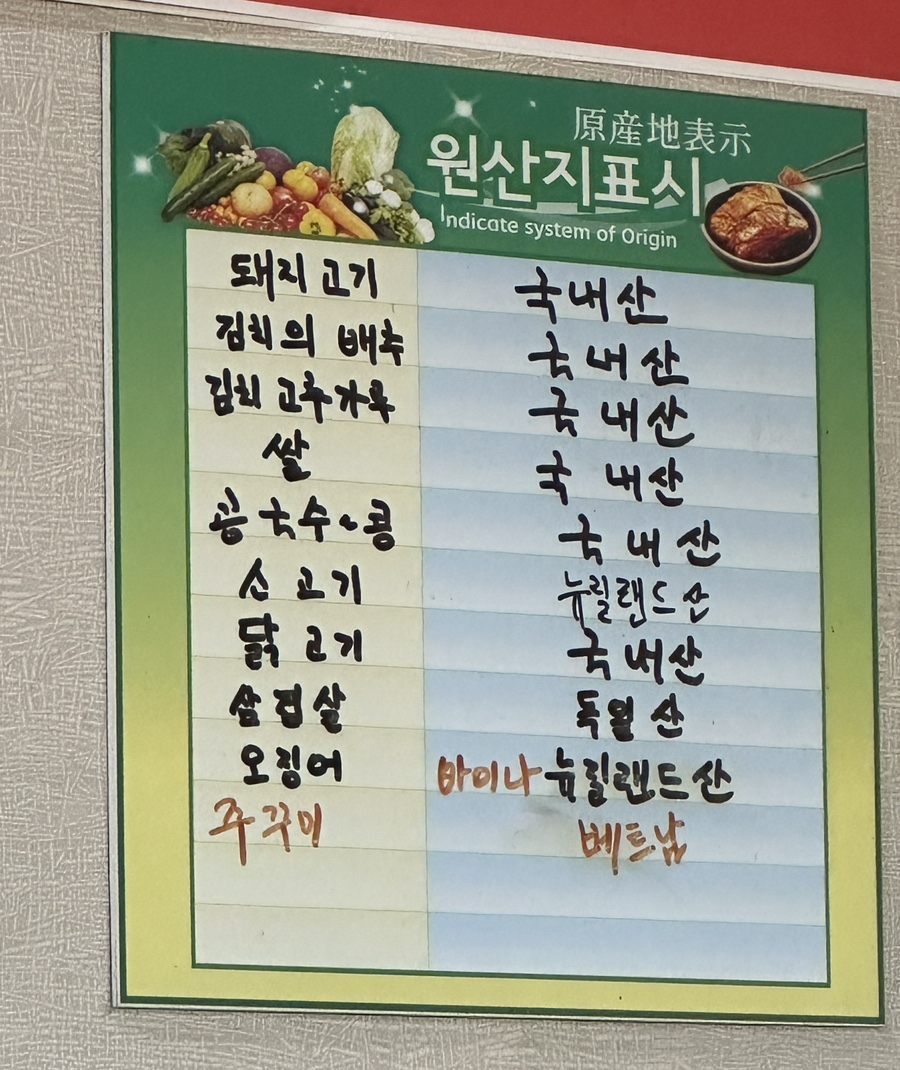 原産地表示
원산지표시
Indicate system of Origin
돼지고기 국내산
김치의 배추 국내산
김치 고추가루 국내산
쌀 국내산
콩국수~콩 국내산
소고기 뉴질랜드산
닭고기 국내산
삼겹살 독일산
오징어 뉴질랜드산
쭈꾸미 베트남